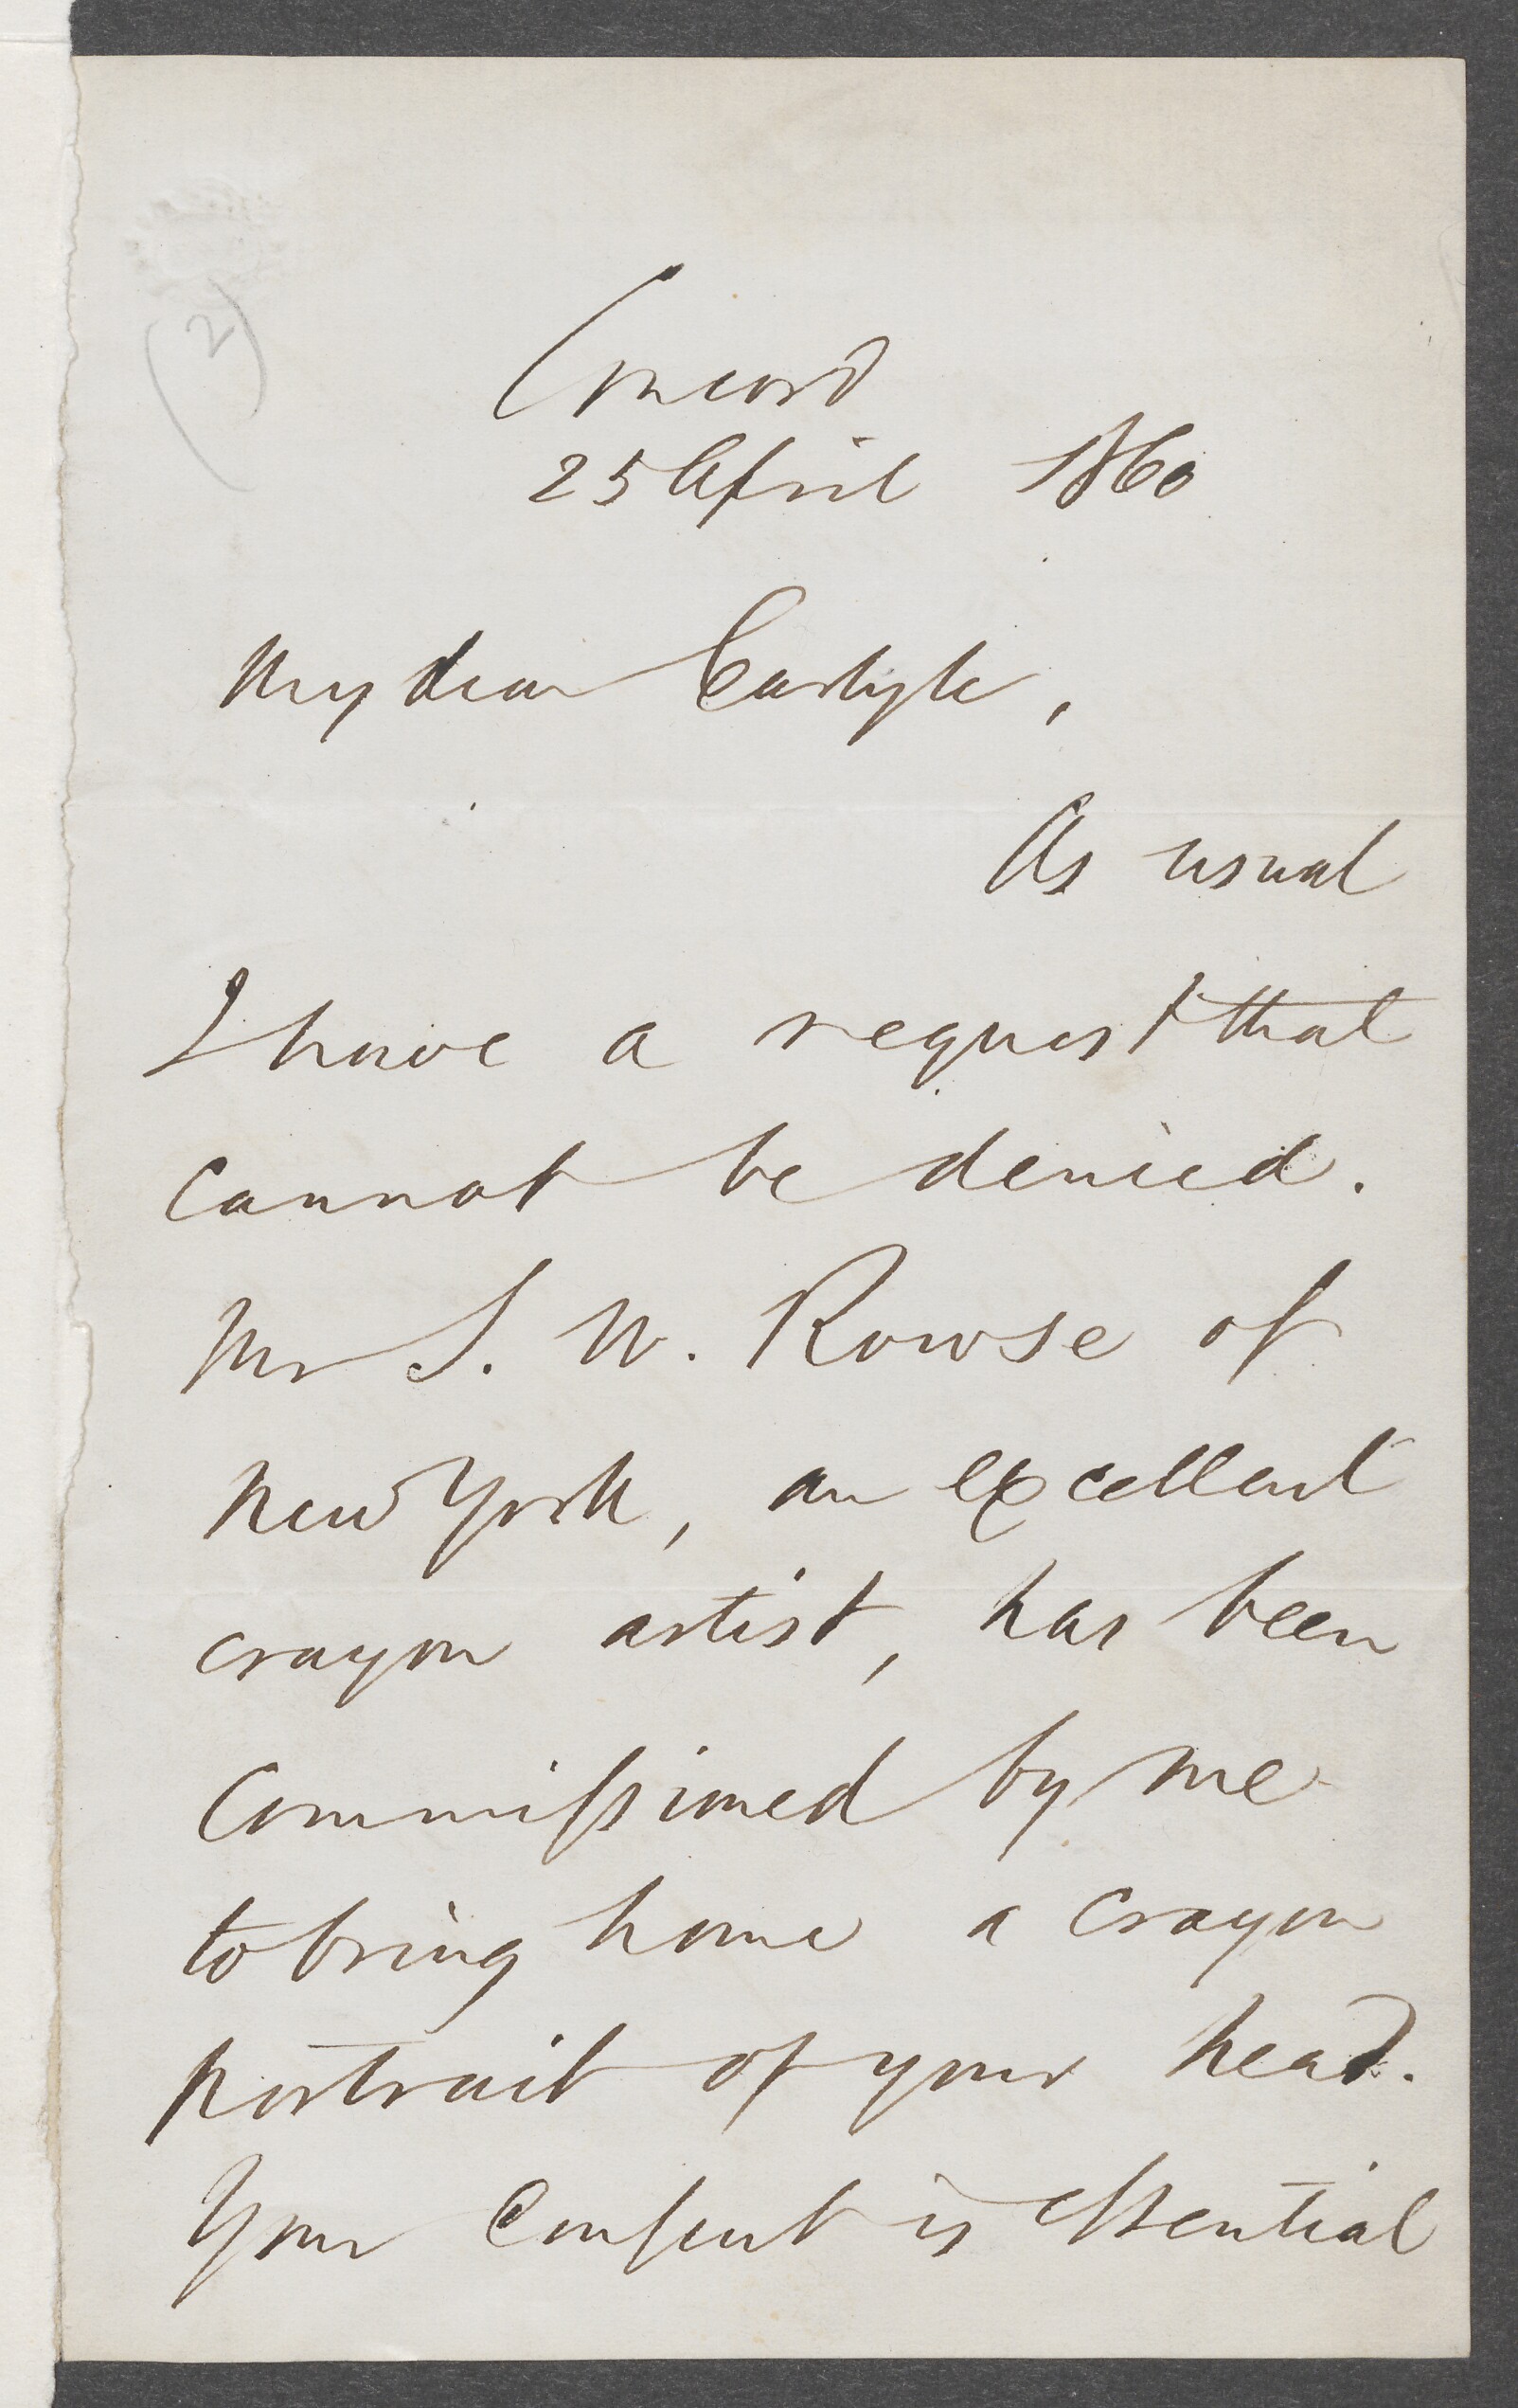 (2)
Concord
25 April 1860
My dear Carlyle,
As usual
I have a request that
cannot be denied.
Mr S. W. Rowse of
New York, an excellent
crayon artist, has been
commissioned by me
to bring home a crayon
portrait of your head.
Your consent is essential